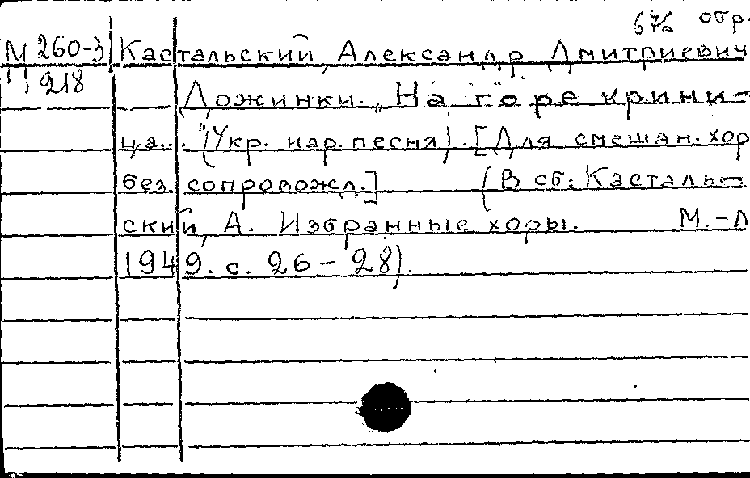 обр.
М 260-3 Кастальский, Александр Дмитриевич
218 Дожинки. „На горе крини-
ца." (Укр. нар. песня). [Для смешан. хор
без сопровожд.] (В сб: Касталь-
ский, А. Избранные хоры. М.-Л
1949. с. 26-28).